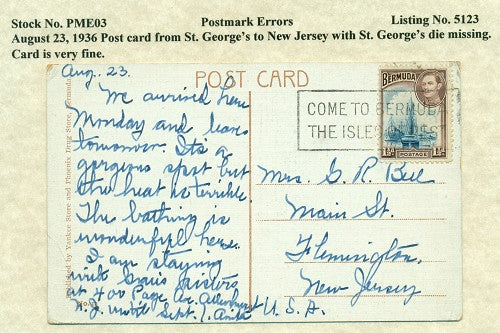 Stock No. PME03 Postmark Errors Listing No. 5123
August 23, 1936 Post card from St. George's to New Jersey with St. George's die missing.
Card is very fine.
Aug. 23.
POST CARD
We arrived here
Monday and leave
tomorrow. It's a
gorgeous spot but
the heat is terrible.
The bathing is
wonderful here.
I am staying
with
at 400 Page Av. Allenhurst
N.J. until Sept. 1. Anita
BERMUDA
POSTAGE
COME TO BERMUDA
THE ISLES OF REST
Mrs. G. R. Bell
Main St.
Flemington,
New Jersey
U.S.A.
Published by Yankee Store and Phoenix Drug Store, Bermuda